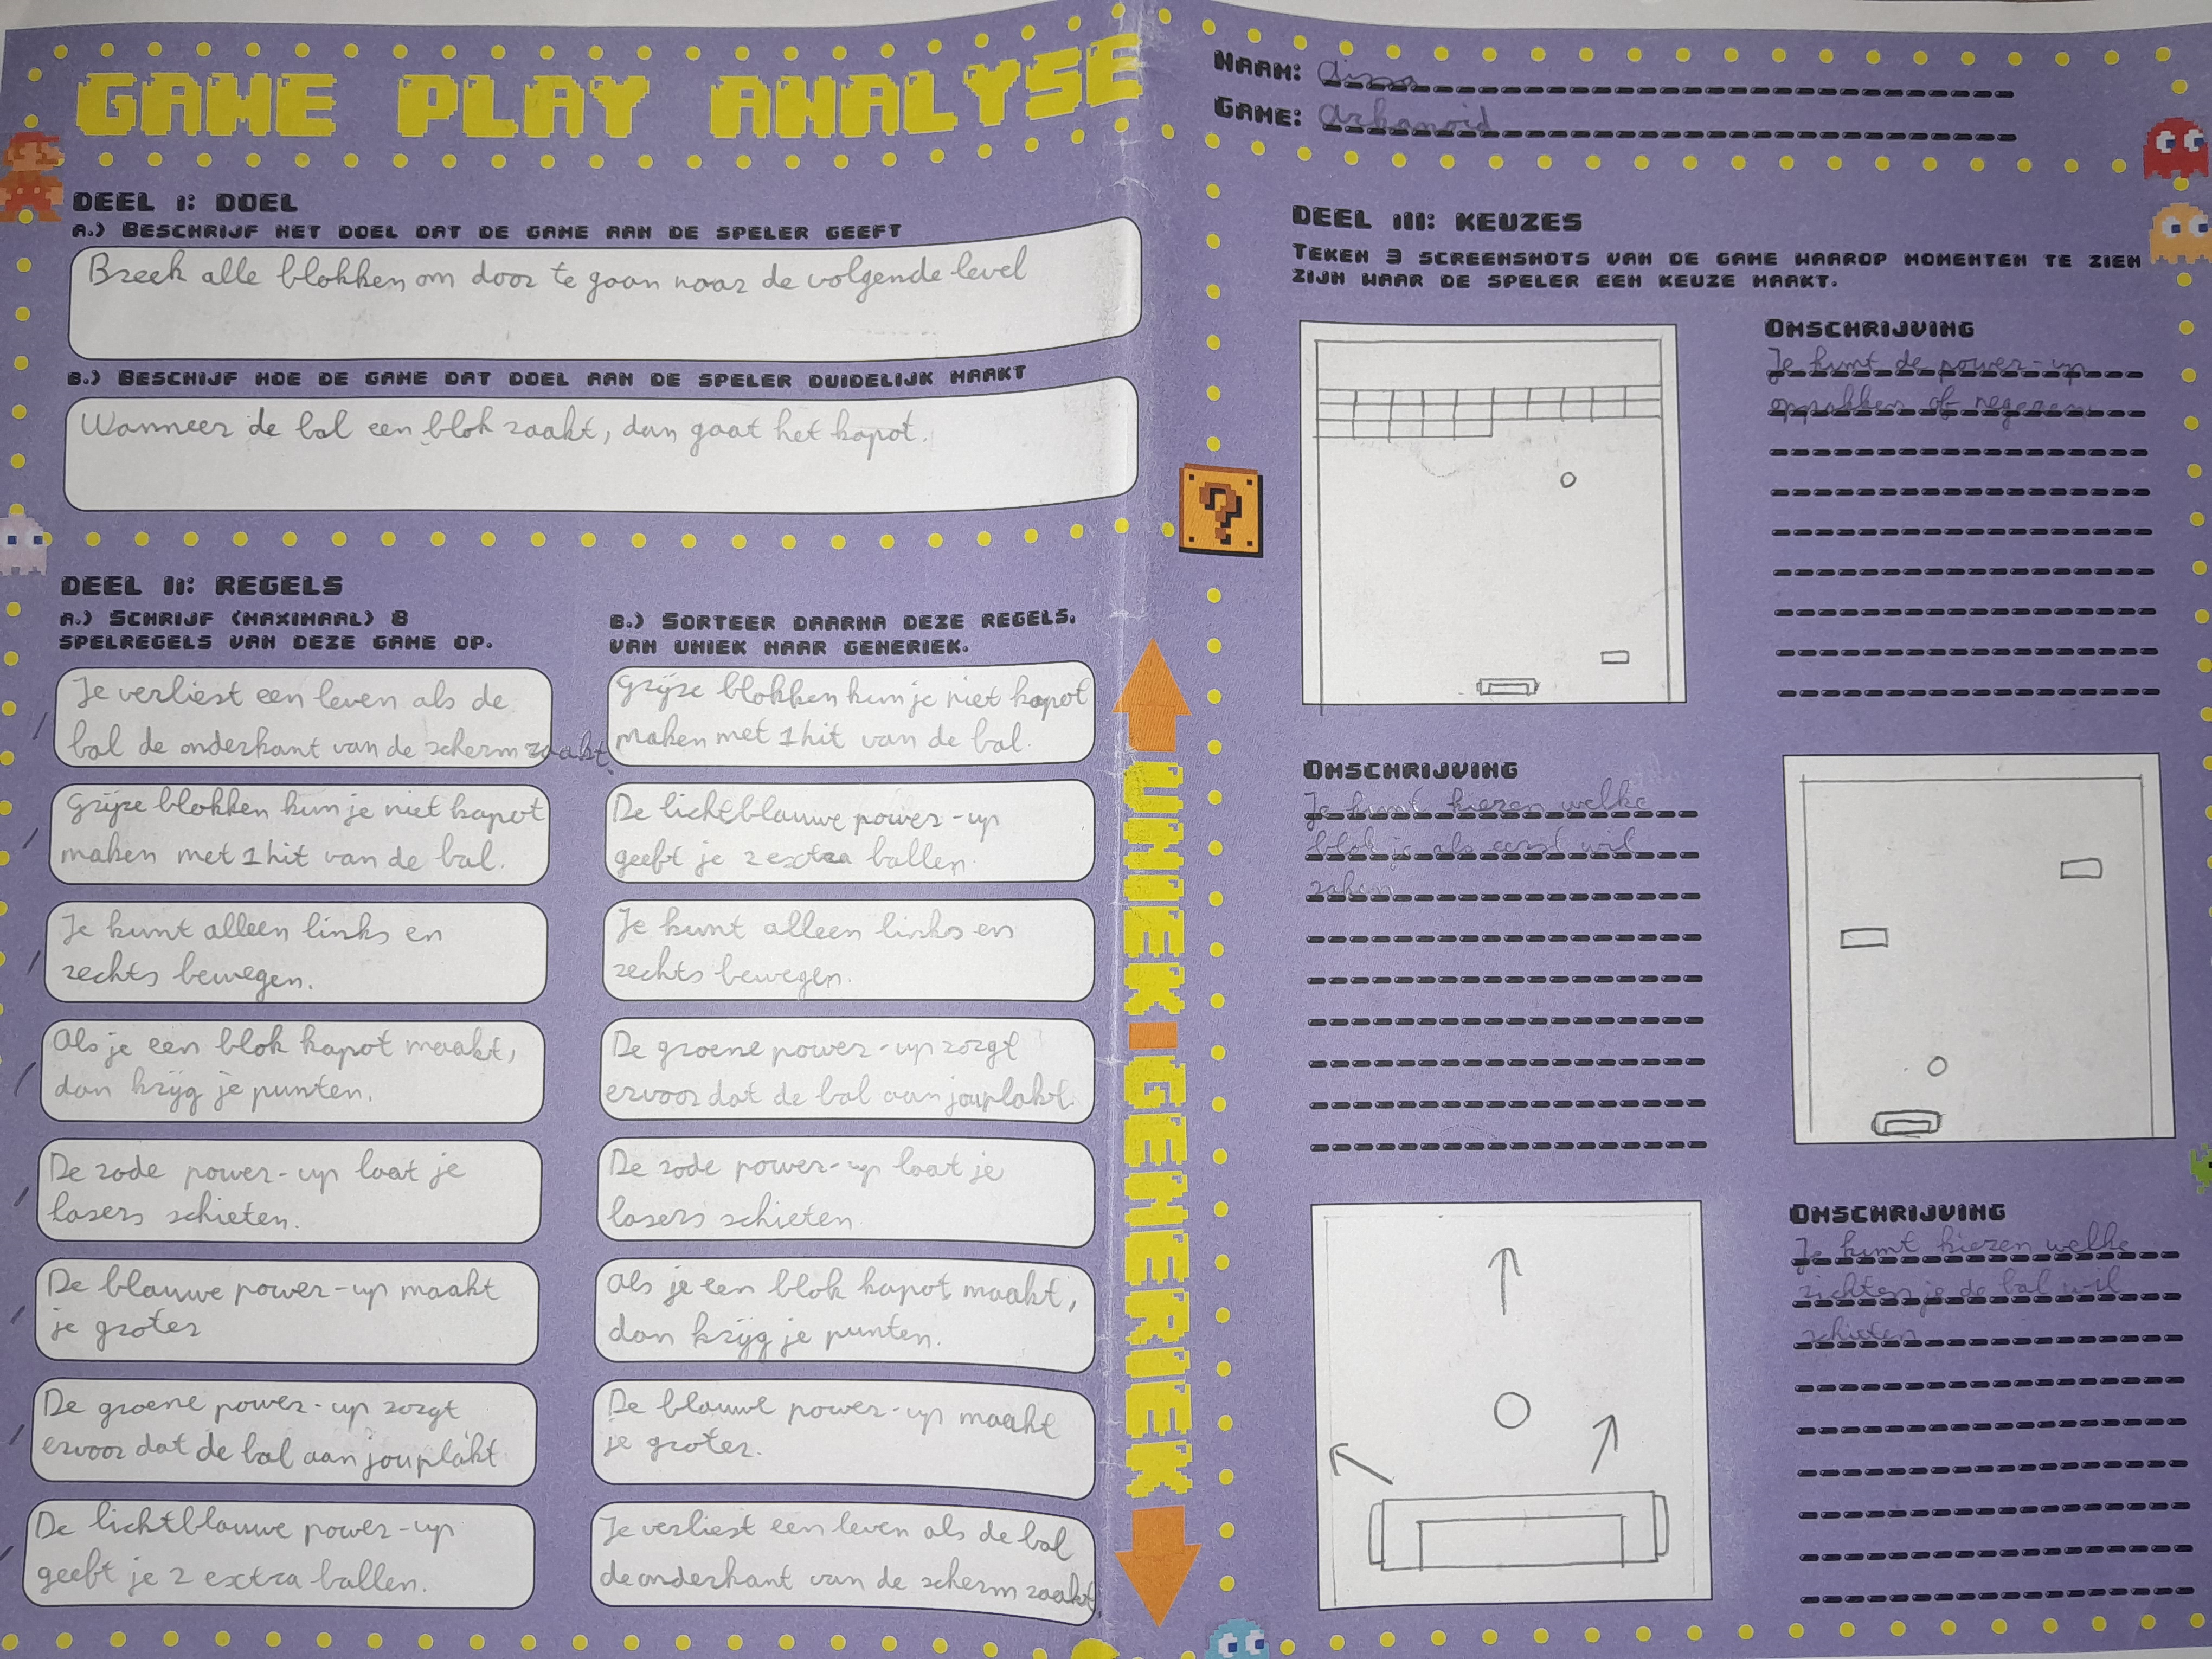 GAME PLAY ANALYSE
NAAM: Aissa
GAME: Arkanoid
DEEL I: DOEL
A.) BESCHRIJF HET DOEL DAT DE GAME AAN DE SPELER GEEFT
Breek alle blokken om door te gaan naar de volgende level
B.) BESCHIJF HOE DE GAME DAT DOEL AAN DE SPELER DUIDELIJK MAAKT
Wanneer de bal een blok raakt, dan gaat het kapot.
DEEL II: REGELS
A.) SCHRIJF (MAXIMAAL) 8
SPELREGELS VAN DEZE GAME OP.
Je verliest een leven als de
bal de onderkant van de scherm raakt.
Grijze blokken kun je niet kapot
maken met 1 hit van de bal.
Je kunt alleen links en
rechts bewegen.
Als je een blok kapot maakt,
dan krijg je punten.
De rode power-up laat je
lasers schieten.
De blauwe power-up maakt
je groter
De groene power-up zorgt
ervoor dat de bal aan jou plakt
De lichtblauwe power-up
geeft je 2 extra ballen.
B.) SORTEER DAARNA DEZE REGELS,
VAN UNIEK NAAR GENERIEK.
Grijze blokken kun je niet kapot
maken met 1 hit van de bal.
De lichtblauwe power-up
geeft je 2 extra ballen.
Je kunt alleen links en
rechts bewegen.
De groene power-up zorgt
ervoor dat de bal aan jou plakt.
De rode power-up laat je
lasers schieten
Als je een blok kapot maakt,
dan krijg je punten.
De blauwe power-up maakt
je groter.
Je verliest een leven als de bal
de onderkant van de scherm raakt.
UNIEK GENERIEK
DEEL III: KEUZES
TEKEN 3 SCREENSHOTS VAN DE GAME WAAROP MOMENTEN TE ZIEN
ZIJN WAAR DE SPELER EEN KEUZE MAAKT.
OMSCHRIJVING
Je kunt de power-up
oppakken of negeren
OMSCHRIJVING
Je kunt kiezen welke
blok je als eerst wil
raken
OMSCHRIJVING
Je kunt kiezen welke
richten je de bal wil
schieten